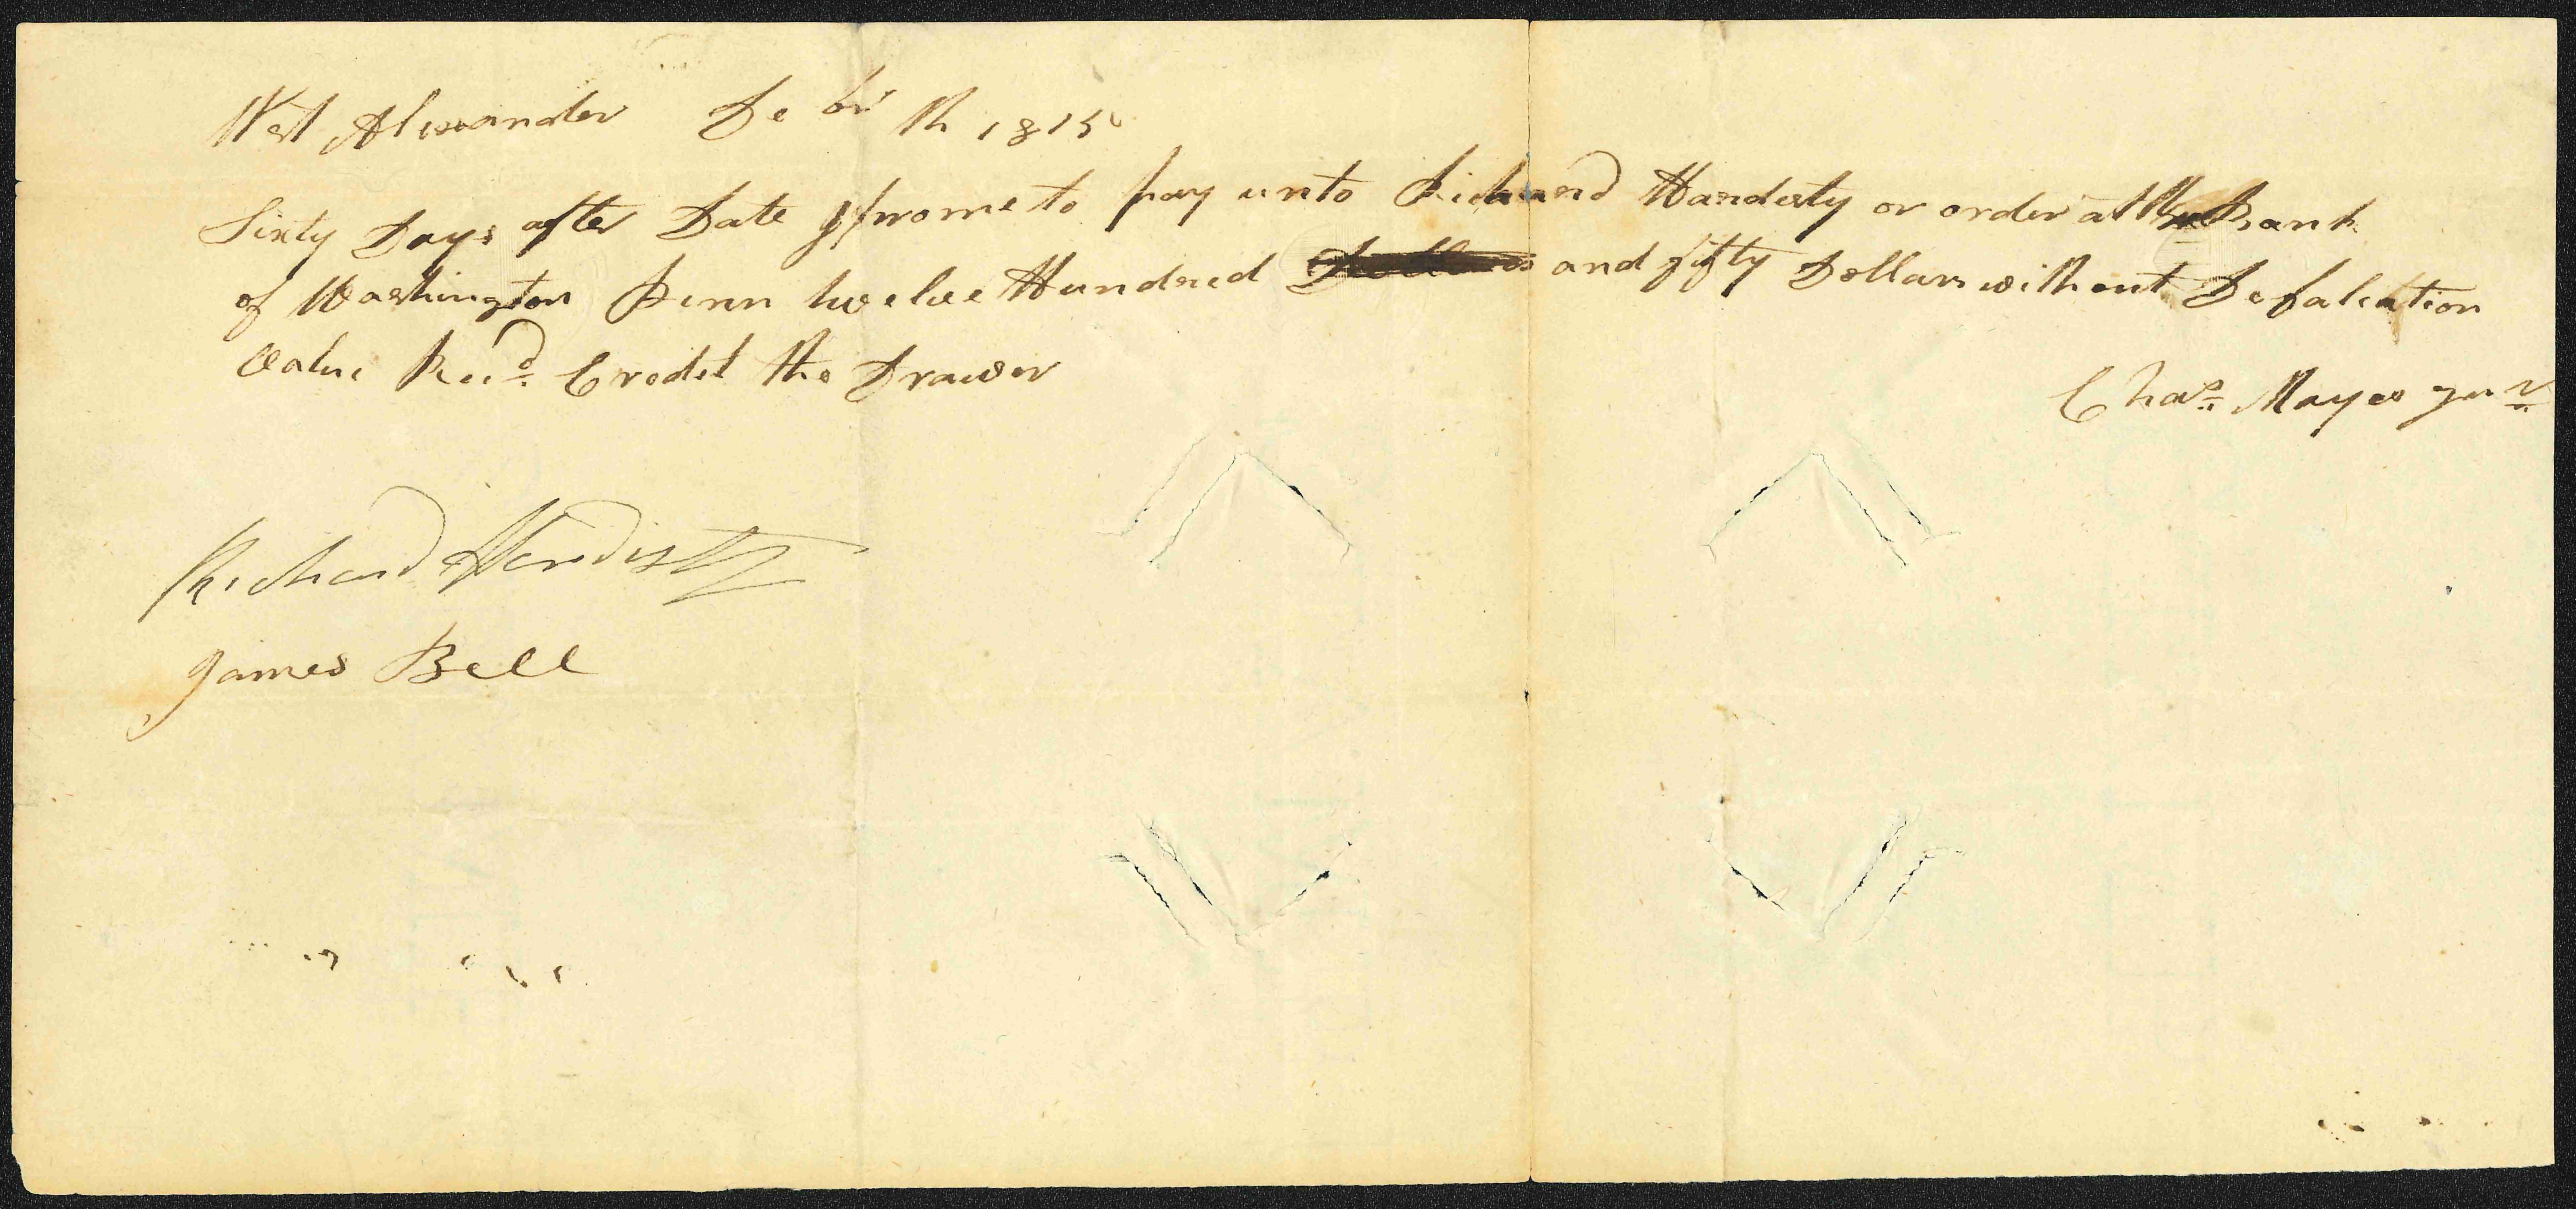 West Alexander De br th 1815
Sixty Days after Date I prome to pay unto Richard Hardesty or order at the Bank
of Washington Penn twelve Hundred Dollars and fifty Dollars without Defalcation
Value Recd. Credit the Drawer
Chas. Mayes Junr
Richard Hardisty
James Bell